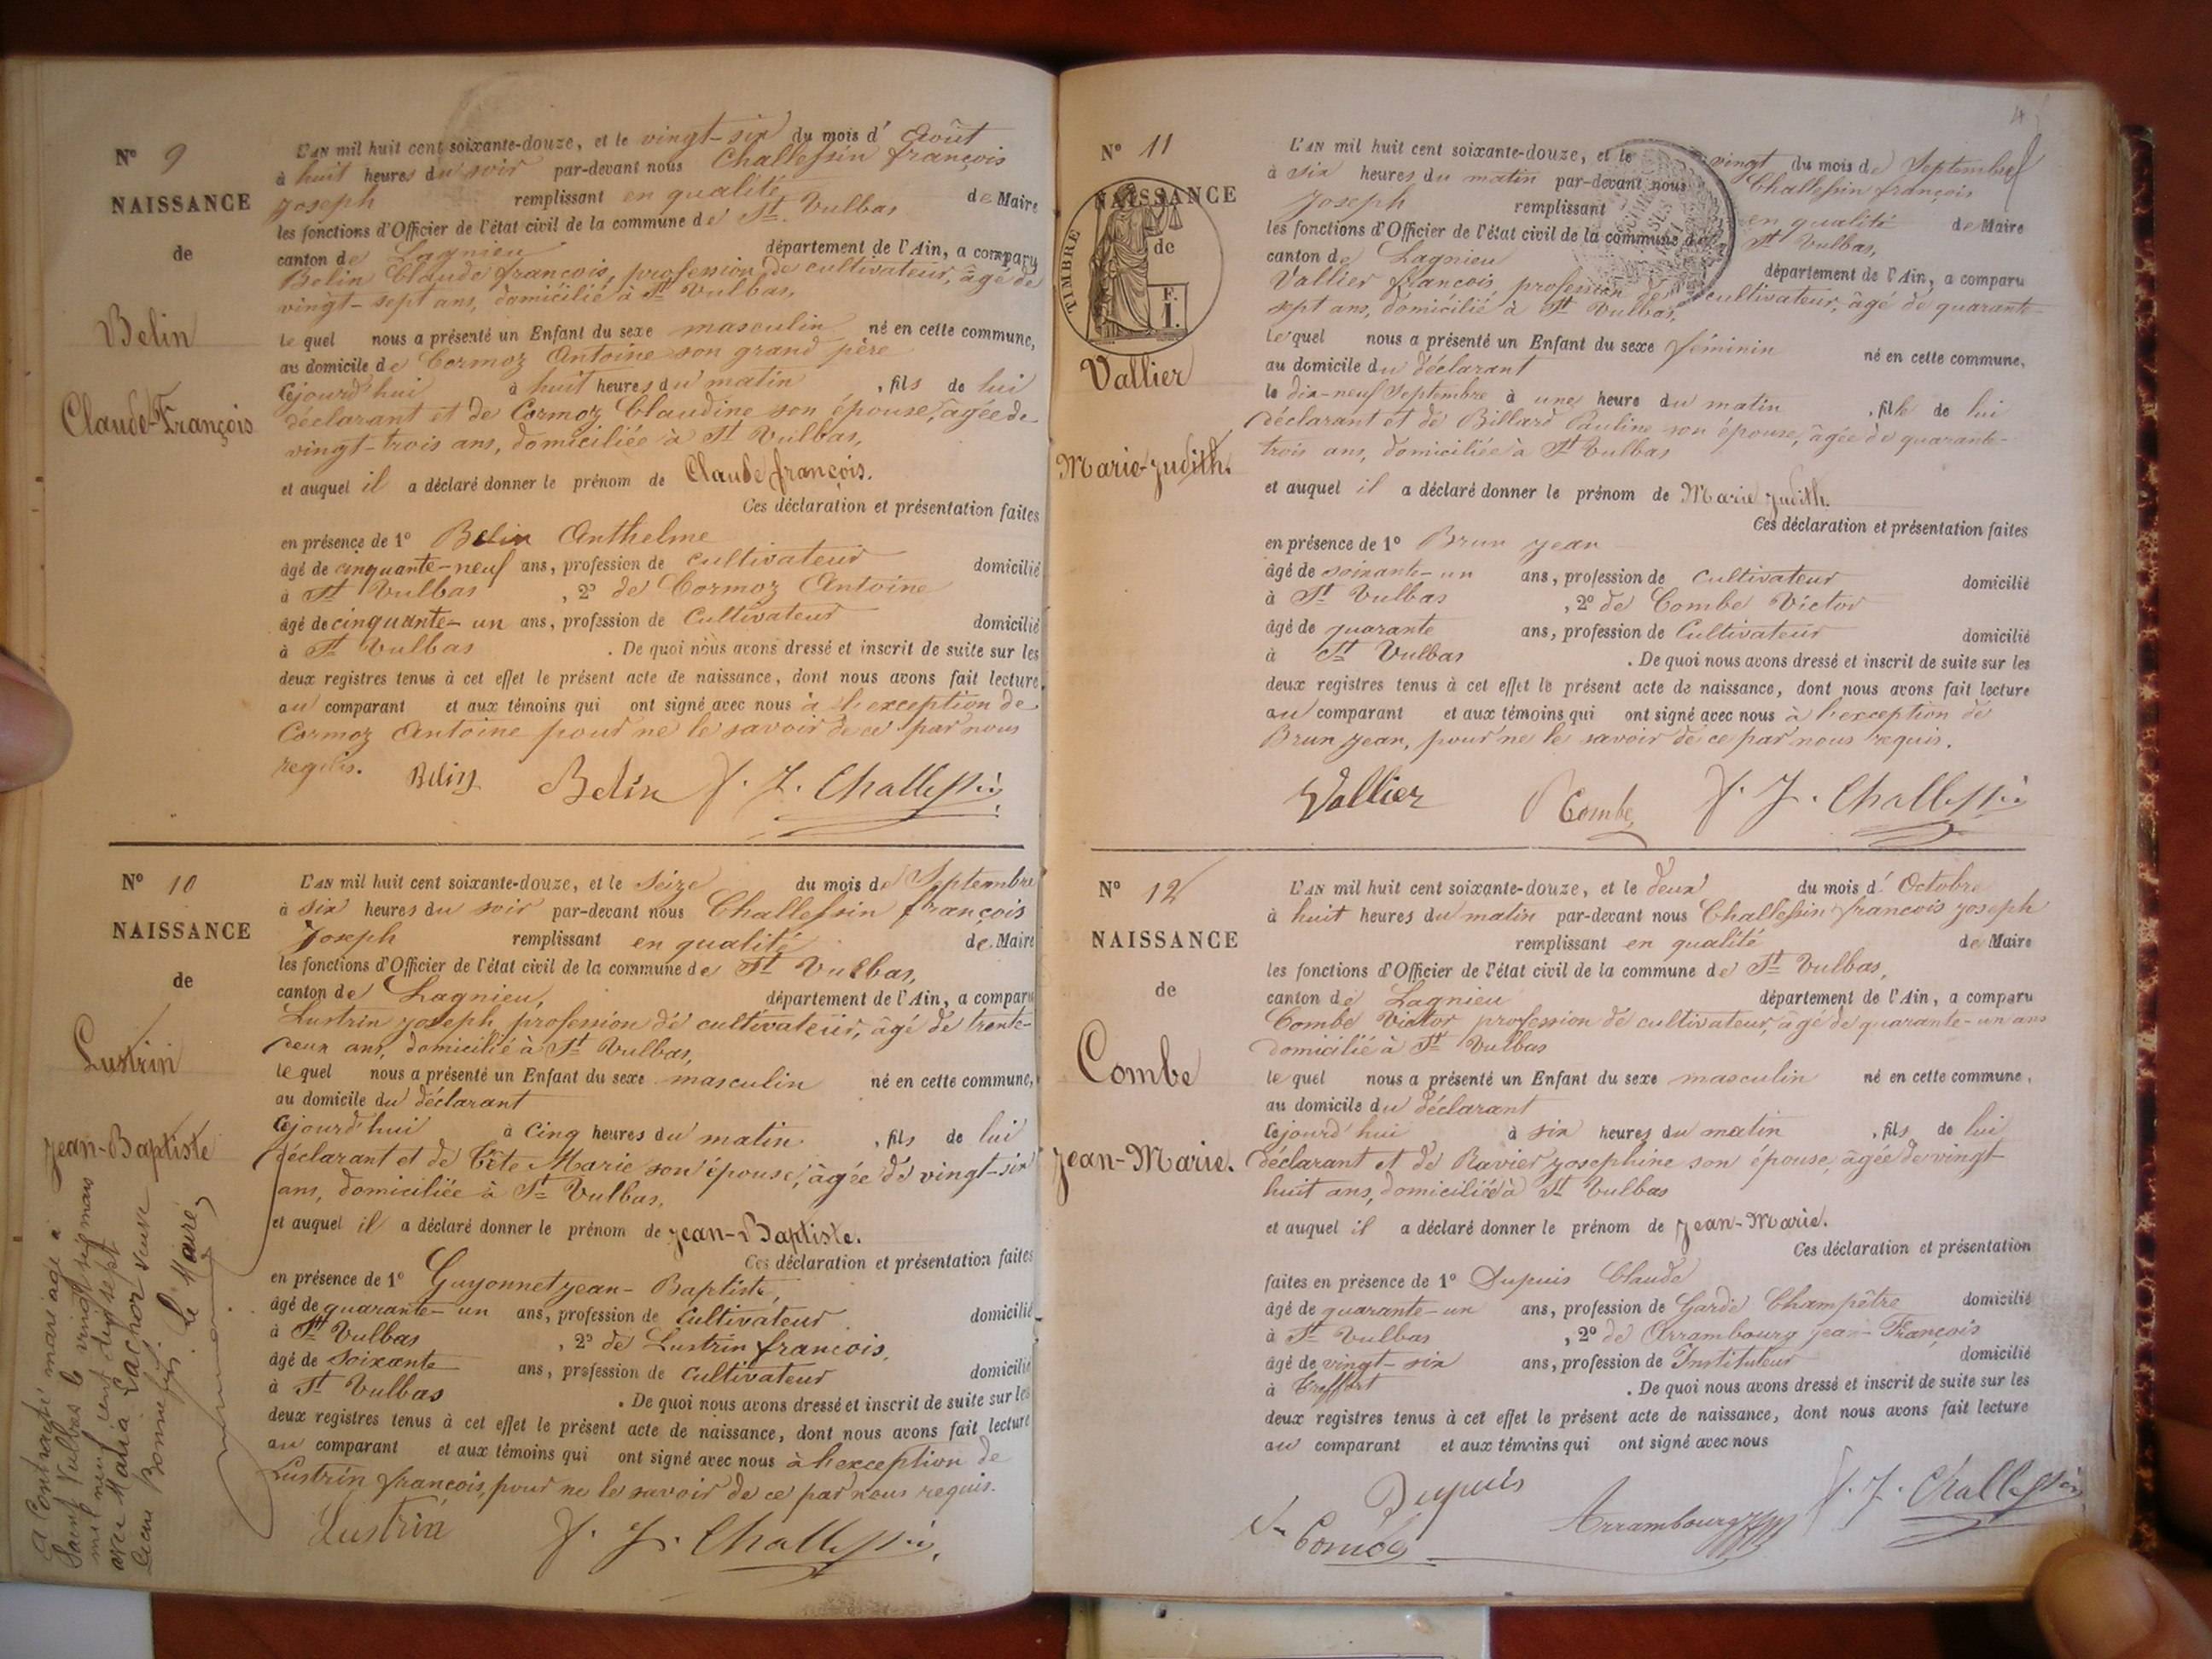 N° 9
NAISSANCE
de
Belin
Claude-François
L'AN mil huit cent soixante-douze, et le vingt-six du mois d' Août
à huit heures du soir par-devant nous Challessin françois
Joseph remplissant en qualité de Maire
les fonctions d'Officier de l'état civil de la commune de St Vulbas
canton de Lagnieu département de l'Ain, a comparu
Belin Claude francois, profession de cultivateur, âgé de
vingt-sept ans, domicilié à St Vulbas,
le quel nous a présenté un Enfant du sexe masculin né en cette commune,
au domicile de Cormoz Antoine son grand père
Cejourd'hui à huit heures du matin, fils de lui
déclarant et de Cormoz Claudine son épouse, âgée de
vingt-trois ans, domiciliée à St Vulbas,
et auquel il a déclaré donner le prénom de Claude françois.
Ces déclaration et présentation faites
en présence de 1° Belin Anthelme
âgé de cinquante-neuf ans, profession de cultivateur domicilié
à St Vulbas, 2° de Cormoz Antoine
âgé de cinquante-un ans, profession de Cultivateur domicilié
à St Vulbas. De quoi nous avons dressé et inscrit de suite sur les
deux registres tenus à cet effet le présent acte de naissance, dont nous avons fait lecture
au comparant et aux témoins qui ont signé avec nous à l'exception de
Cormoz Antoine pour ne le savoir de ce par nous
requis. Belin Belin f. J. Challessin
N° 10
NAISSANCE
de
Lustrin
Jean-Baptiste
a Contracté mariage à
Saint Vulbas le vingt six mars
mil neuf cent dix sept
avec Maria Lachor veuve
Jean Bonnefoy. Le Maire,
L'AN mil huit cent soixante-douze, et le Seize du mois de Septembre
à six heures du soir par-devant nous Challessin françois
Joseph remplissant en qualité de Maire
les fonctions d'Officier de l'état civil de la commune de St Vulbas,
canton de Lagnieu, département de l'Ain, a comparu
Lustrin joseph, profession de cultivateur, âgé de trente-
deux ans, domicilié à St Vulbas,
le quel nous a présenté un Enfant du sexe masculin né en cette commune,
au domicile du déclarant
Cejourd'hui à Cinq heures du matin, fils de lui
déclarant et de Tête Marie son épouse, âgée de vingt-six
ans, domiciliée à St Vulbas,
et auquel il a déclaré donner le prénom de Jean-Baptiste.
Ces déclaration et présentation faites
en présence de 1° Guyonnet jean-Baptiste,
âgé de quarante-un ans, profession de Cultivateur domicilié
à St Vulbas, 2° de Lustrin francois,
âgé de Soixante ans, profession de Cultivateur domicilié
à St Vulbas. De quoi nous avons dressé et inscrit de suite sur les
deux registres tenus à cet effet le présent acte de naissance, dont nous avons fait lecture
au comparant et aux témoins qui ont signé avec nous à l'exception de
Lustrin francois, pour ne le savoir de ce par nous requis.
Lustrin f. J. Challessin
N° 11
NAISSANCE
de
TIMBRE
F.
1.
Vallier
Marie-Judith.
L'AN mil huit cent soixante-douze, et le vingt du mois de Septembre
à six heures du matin par-devant nous Challessin françois
Joseph remplissant en qualité de Maire
les fonctions d'Officier de l'état civil de la commune de St Vulbas,
canton de Lagnieu département de l'Ain, a comparu
Vallier francois, profession de cultivateur, âgé de quarante-
sept ans, domicilié à St Vulbas,
le quel nous a présenté un Enfant du sexe féminin né en cette commune,
au domicile du déclarant
le dix-neuf Septembre à une heure du matin, fille de lui
déclarant et de Billard Pauline son épouse, âgée de quarante-
trois ans, domiciliée à St Vulbas
et auquel il a déclaré donner le prénom de Marie Judith.
Ces déclaration et présentation faites
en présence de 1° Brun jean
âgé de soixante-un ans, profession de Cultivateur domicilié
à St Vulbas, 2° de Combe Victor
âgé de quarante ans, profession de Cultivateur domicilié
à St Vulbas. De quoi nous avons dressé et inscrit de suite sur les
deux registres tenus à cet effet le présent acte de naissance, dont nous avons fait lecture
au comparant et aux témoins qui ont signé avec nous à l'exception de
Brun jean, pour ne le savoir de ce par nous requis.
Vallier Combe f. J. Challessin
N° 12
NAISSANCE
de
Combe
Jean-Marie.
L'AN mil huit cent soixante-douze, et le deux du mois d' Octobre
à huit heures du matin par-devant nous Challessin francois joseph
remplissant en qualité de Maire
les fonctions d'Officier de l'état civil de la commune de St Vulbas,
canton de Lagnieu département de l'Ain, a comparu
Combe Victor profession de cultivateur, âgé de quarante-un ans
domicilié à St Vulbas
le quel nous a présenté un Enfant du sexe masculin né en cette commune,
au domicile du déclarant
Cejourd'hui à six heures du matin, fils de lui
déclarant et de Ravier josephine son épouse, âgée de vingt-
huit ans, domiciliée à St Vulbas
et auquel il a déclaré donner le prénom de Jean-Marie.
Ces déclaration et présentation
faites en présence de 1° Dupuis Claude
âgé de quarante-un ans, profession de Garde Champêtre domicilié
à St Vulbas, 2° de Arrambourg jean-François
âgé de vingt-six ans, profession de Instituteur domicilié
à Treffort. De quoi nous avons dressé et inscrit de suite sur les
deux registres tenus à cet effet le présent acte de naissance, dont nous avons fait lecture
au comparant et aux témoins qui ont signé avec nous
Dupuis f. J. Challessin
Combe Arrambourg